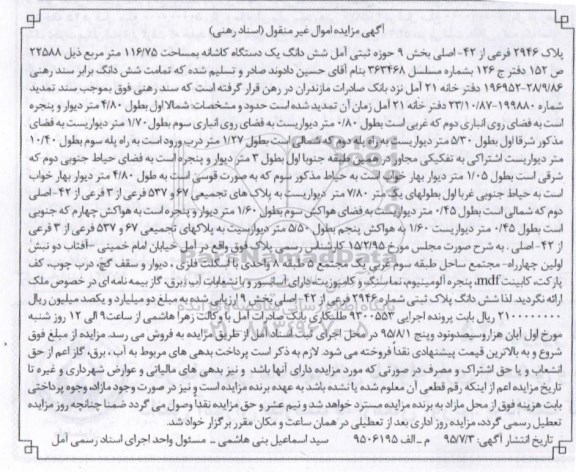 آگهی مزایده اموال غیر منقول (اسناد رهنی)
پلاک ۲۹۴۶ فرعی از ۴۲- اصلی بخش ۹ حوزه ثبتی آمل شش دانگ یک دستگاه کاشانه بمساحت ۱۱۶/۷۵ متر مربع ذیل ۲۲۵۸۸
ص ۱۵۲ دفتر ج ۱۲۶ بشماره مسلسل ۳۶۳۴۶۸ بنام آقای حسین دادوند صادر و تسلیم شده که تمامت شش دانگ برابر سند رهنی
۲۸/۹/۸۶-۱۹۶۹۵۲ دفتر خانه ۲۱ آمل نزد بانک صادرات مازندران در رهن قرار گرفته است که سند رهنی فوق بموجب سند تمدید
شماره ۱۹۹۸۸۰-۲۳/۱۰/۸۷ دفتر خانه ۲۱ آمل زمان آن تمدید شده است حدود و مشخصات شمالا اول بطول ۴/۸۰ متر دیوار و پنجره
است به فضای روی انباری دوم که غربی است بطول ۰/۸۰ متر دیواریست به فضای روی انباری سوم بطول ۱/۷۰ متر دیواریست به فضای
مذکور شرقا اول بطول ۵/۳۰ متر دیواریست به راه پله دوم که شمالی است بطول ۱/۲۷ متر درب ورود است به راه پله سوم بطول ۱۰/۴۰
متر دیواریست اشتراکی به تفکیکی مجاور در همین طبقه جنوبا اول بطول ۳ متر دیوار و پنجره است به فضای حیاط جنوبی دوم که
شرقی است بطول ۱/۰۵ متر دیوار بهار خواب است به حیاط مذکور سوم که به صورت قوسی است به طول ۴/۸۰ متر دیوار بهار خواب
است به حیاط جنوبی غربا اول بطولهای یک متر ۷/۸۰ متر دیواریست به پلاک های تجمیعی ۶۷ و ۵۳۷ فرعی از ۳ فرعی از ۴۲-اصلی
دوم که شمالی است بطول ۰/۴۵ متر دیواریست به فضای هواکش سوم بطول ۱/۶۰ متر دیوار و پنجره است به هواکش چهارم که جنوبی
است بطول ۰/۴۵ متر دیواریست ۱/۶۰ به هواکش پنجم بطول ۵/۵۰ متر دیواریست به پلاکهای تجمیعی ۶۷ و ۵۳۷ فرعی از ۳ فرعی
از ۴۲- اصلی . به شرح صورت مجلس مورخ ۱۵/۲/۹۵ کارشناس رسمی پلاک فوق واقع در آمل خیابان امام خمینی -آفتاب دو نبش
اولین چهارراه- مجتمع ساحل طبقه سوم غربی یک مجتمع ۵ طبقه ۸ واحدی با اسکلت فلزی ، دیوار و سقف گچ، درب چوب، کف
پارکت، کابینت mdf، پنجره آلومینیوم، نما سنگ و کامپوزیت، دارای آسانسور و با انشعابات آب ،برق، گاز بیمه نامه ای در خصوص ملک
ارائه نگردید. لذا شش دانگ پلاک ثبتی شماره ۲۹۴۶ فرعی از ۴۲- اصلی بخش ۹ ارزیابی شده به مبلغ دو میلیارد و یکصد میلیون ریال
۲۱۰۰۰۰۰۰۰۰ ریال بابت پرونده اجرایی ۹۳۰۰۵۵۳ طلبکاری بانک صادرات آمل با وکالت زهرا هاشمی از ساعت ۹ الی ۱۲ روز شنبه
مورخ اول آبان هزاروسیصدونود وپنج ۹۵/۸/۱ در محل اجرای ثبت اسناد آمل از طریق مزایده به فروش می رسد. مزایده از مبلغ فوق
شروع و به بالاترین قیمت پیشنهادی نقداً فروخته می شود. لازم به ذکر است پرداخت بدهی های مربوط به آب ، برق، گاز اعم از حق
انشعاب و یا حق اشتراک و مصرف در صورتی که مورد مزایده دارای آنها باشد و نیز بدهی های مالیاتی و عوارض شهرداری و غیره تا
تاریخ مزایده اعم از اینکه رقم قطعی آن معلوم شده یا نشده باشد به عهده برنده مزایده است و نیز در صورت وجود مازاد، وجوه پرداختی
بابت هزینه فوق از محل مازاد به برنده مزایده مسترد خواهد شد و نیم عشر و حق مزایده نقداً وصول می گردد ضمنا چنانچه روز مزایده
تعطیل رسمی گردد، مزایده روز اداری بعد از تعطیلی در همان ساعت و مکان مقرر برگزار خواهد شد.
تاریخ انتشار آگهی: ۹۵/۷/۳ م-الف ۹۵۰۶۱۹۵ سید اسماعیل بنی هاشمی - مسئول واحد اجرای اسناد رسمی آمل